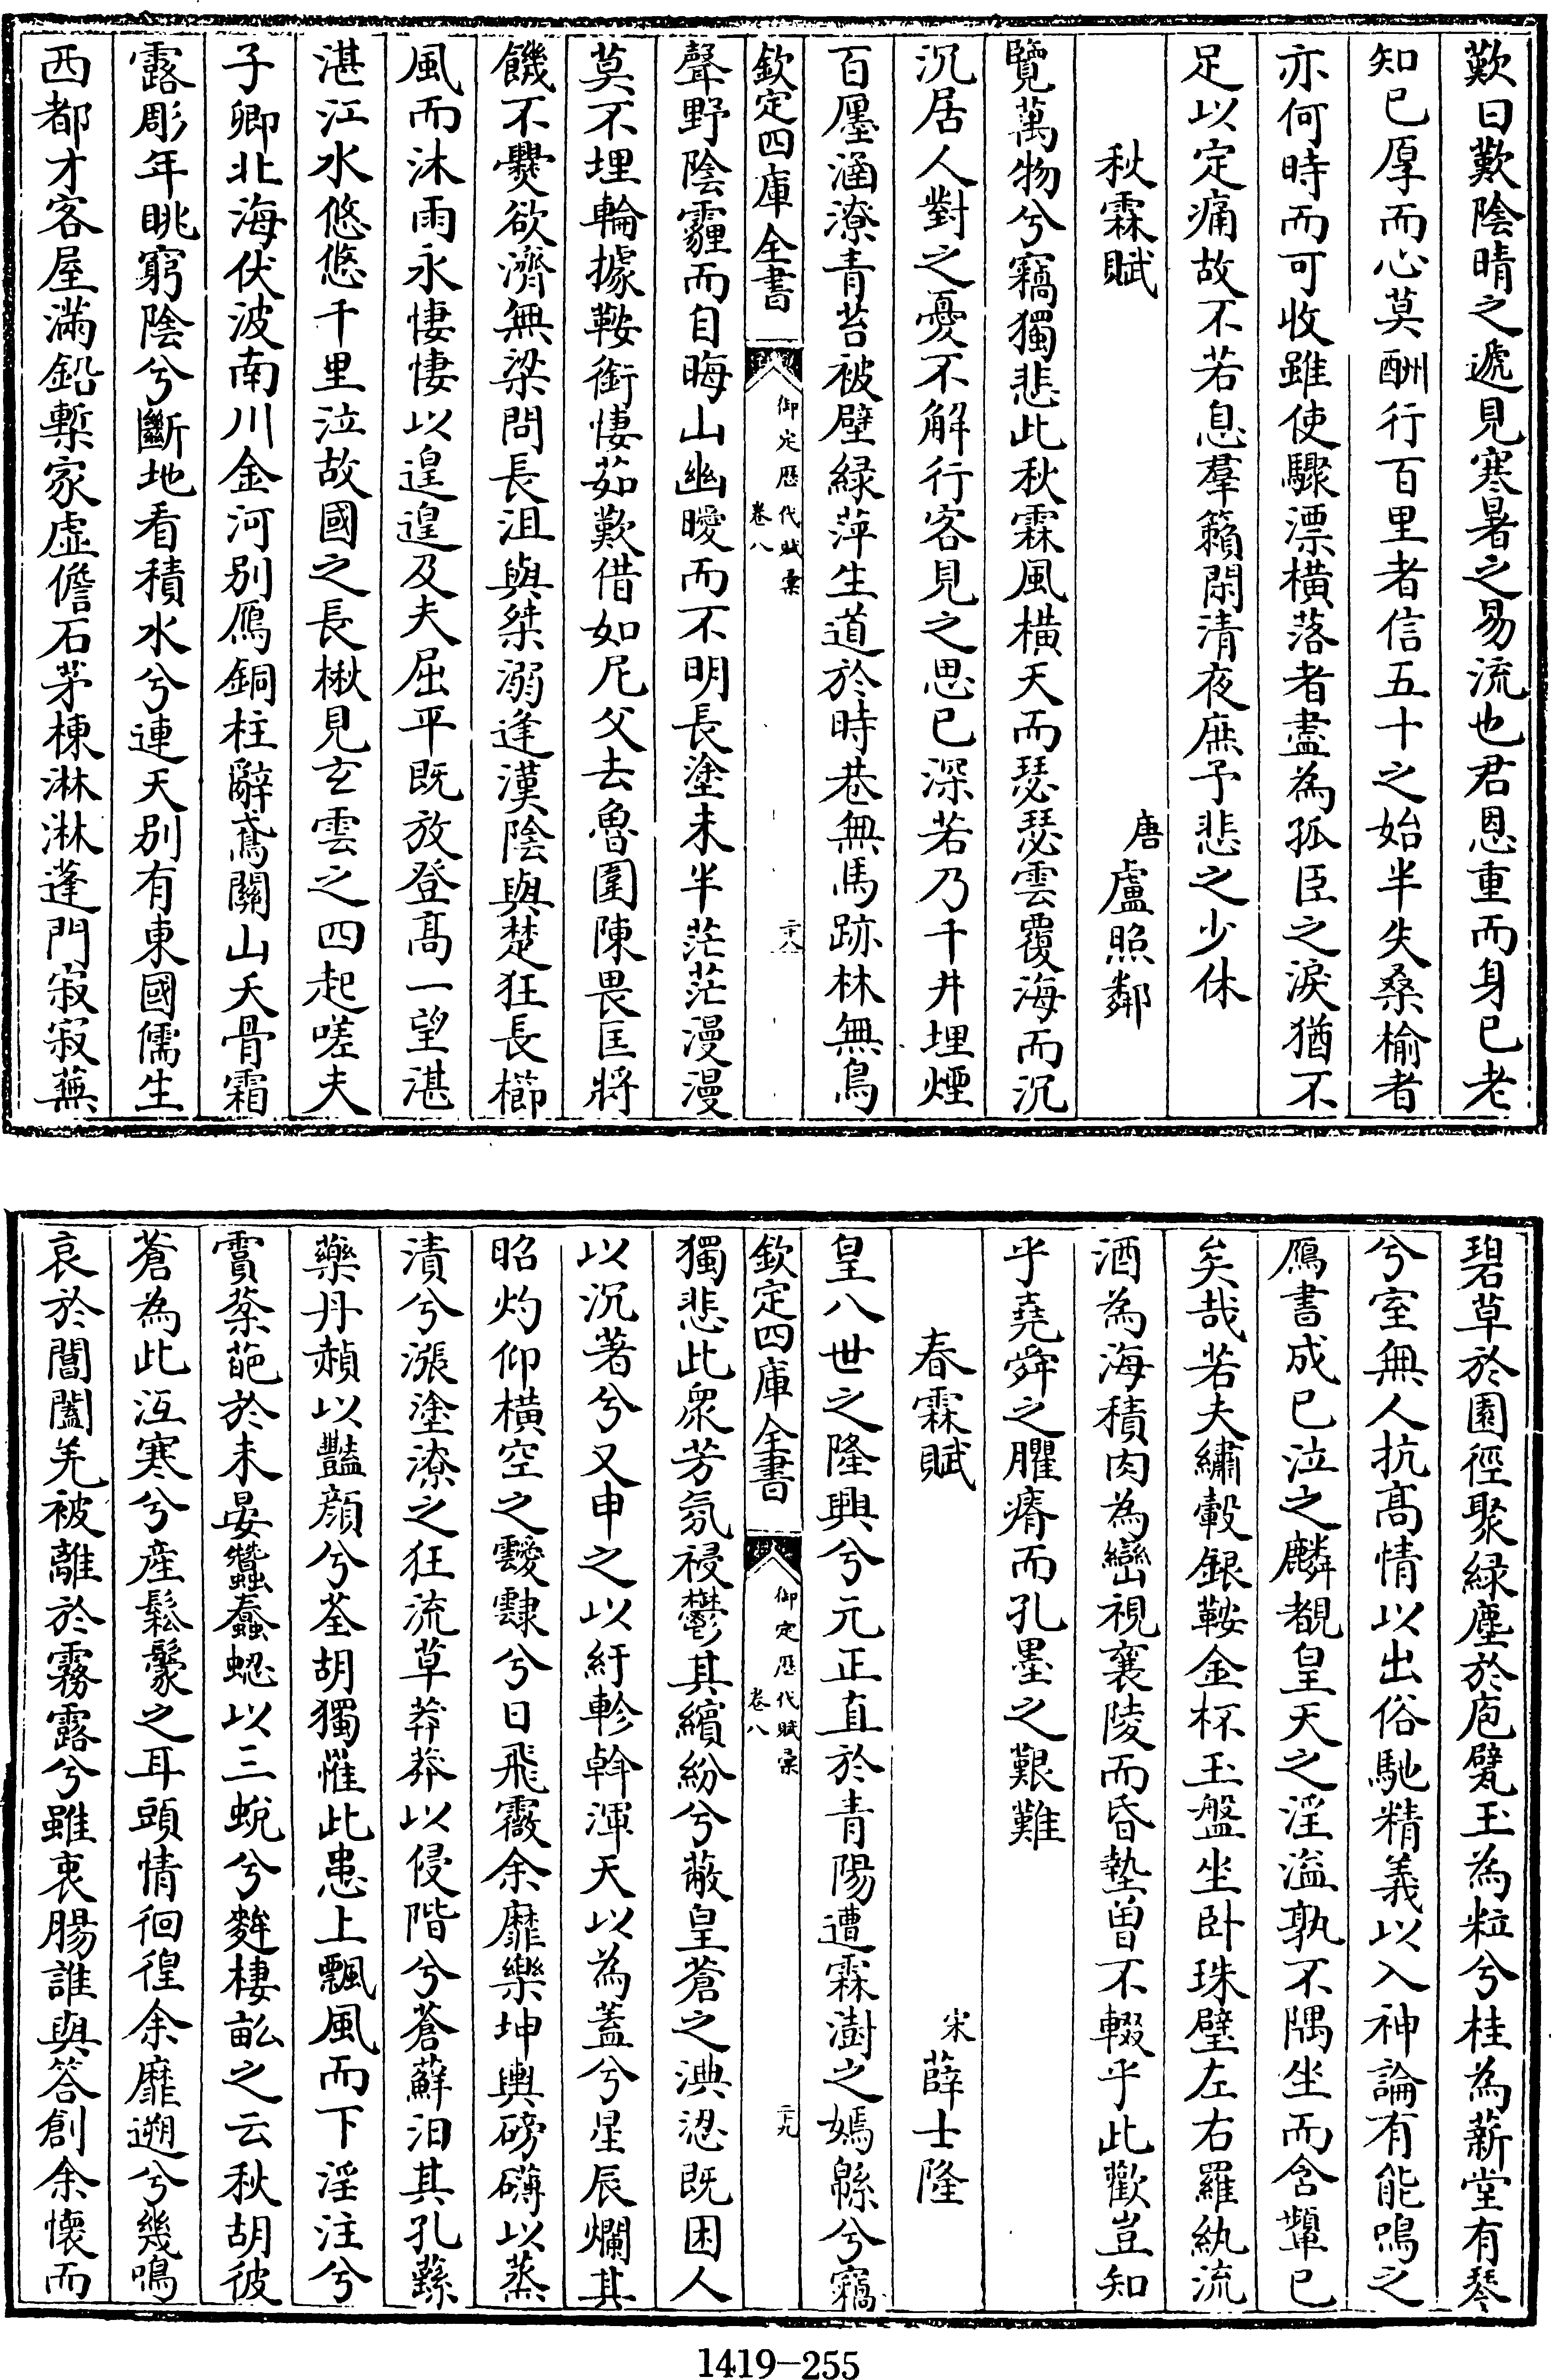 歎曰歎陰晴之遞見寒暑之易流也君恩重而身已老
知已厚而心莫酬行百里者信五十之始半失桑榆者
亦何時而可收雖使驟漂橫落者盡為孤臣之淚猶不
足以定痛故不若息羣籟閑清夜庶予悲之少休
秋霖賦
唐盧照鄰
覽萬物兮竊獨悲此秋霖風橫天而瑟瑟雲覆海而沉
沉居人對之憂不解行客見之思已深若乃千井埋煙
百廛涵潦青苔被壁緑萍生道於時巷無馬跡林無鳥
欽定四庫全書
御定歴代賦彙
卷八
二十八
聲野陰霾而自晦山幽曖而不明長塗未半茫茫漫漫
莫不埋輪據鞍銜悽茹歎借如尼父去魯圍陳畏匡將
饑不爨欲濟無梁問長沮與桀溺逢漢陰與楚狂長櫛
風而沐雨永悽悽以遑遑及夫屈平既放登髙一望湛
湛江水悠悠千里泣故國之長楸見玄雲之四起嗟夫
子卿北海伏波南川金河别鴈銅柱辭鳶關山夭骨霜
露彫年眺窮陰兮斷地看積水兮連天别有東國儒生
西都才客屋滿鉛槧家虛儋石茅棟淋淋蓬門寂寂蕪
碧草於園徑聚緑塵於庖甓玉為粒兮桂為薪堂有琴
兮室無人抗髙情以出俗馳精義以入神論有能鳴之
鴈書成已泣之麟覩皇天之淫溢孰不隅坐而含顰已
矣哉若夫繡轂銀鞍金杯玉盤坐卧珠璧左右羅紈流
酒為海積肉為巒視襄陵而昏墊曽不輟乎此歡豈知
乎堯舜之臞瘠而孔墨之艱難
春霖賦
宋薛士隆
皇八世之隆興兮元正直於青陽遭霖澍之嫣緜兮竊
欽定四庫全書
御定歴代賦彙
卷八
二十九
獨悲此衆芳氛祲鬱其繽紛兮蔽皇蒼之淟涊既困人
以沉著兮又申之以紆軫斡渾天以為蓋兮星辰爛其
昭灼仰橫空之靉靆兮日飛霰余靡樂坤輿磅礴以蒸
漬兮漲塗潦之狂流草莽莽以侵階兮蒼蘚汨其孔蕬
藥丹赬以豔顔兮荃胡獨罹此患上飄風而下淫注兮
霣蘂葩於未晏蠶蠢蜙以三蛻兮麰棲畝之云秋胡彼
蒼為此沍寒兮産鬆鬖之耳頭情徊徨余靡遡兮幾鳴
哀於閶闔羌被離於霧露兮雖衷腸誰與答創余懷而
1419-255